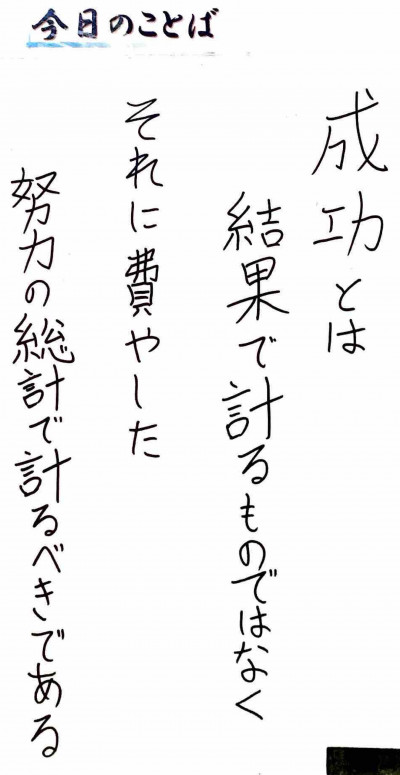 今日のことば
成功とは
結果で計るものではなく
それに費やした
努力の総計で計るべきである